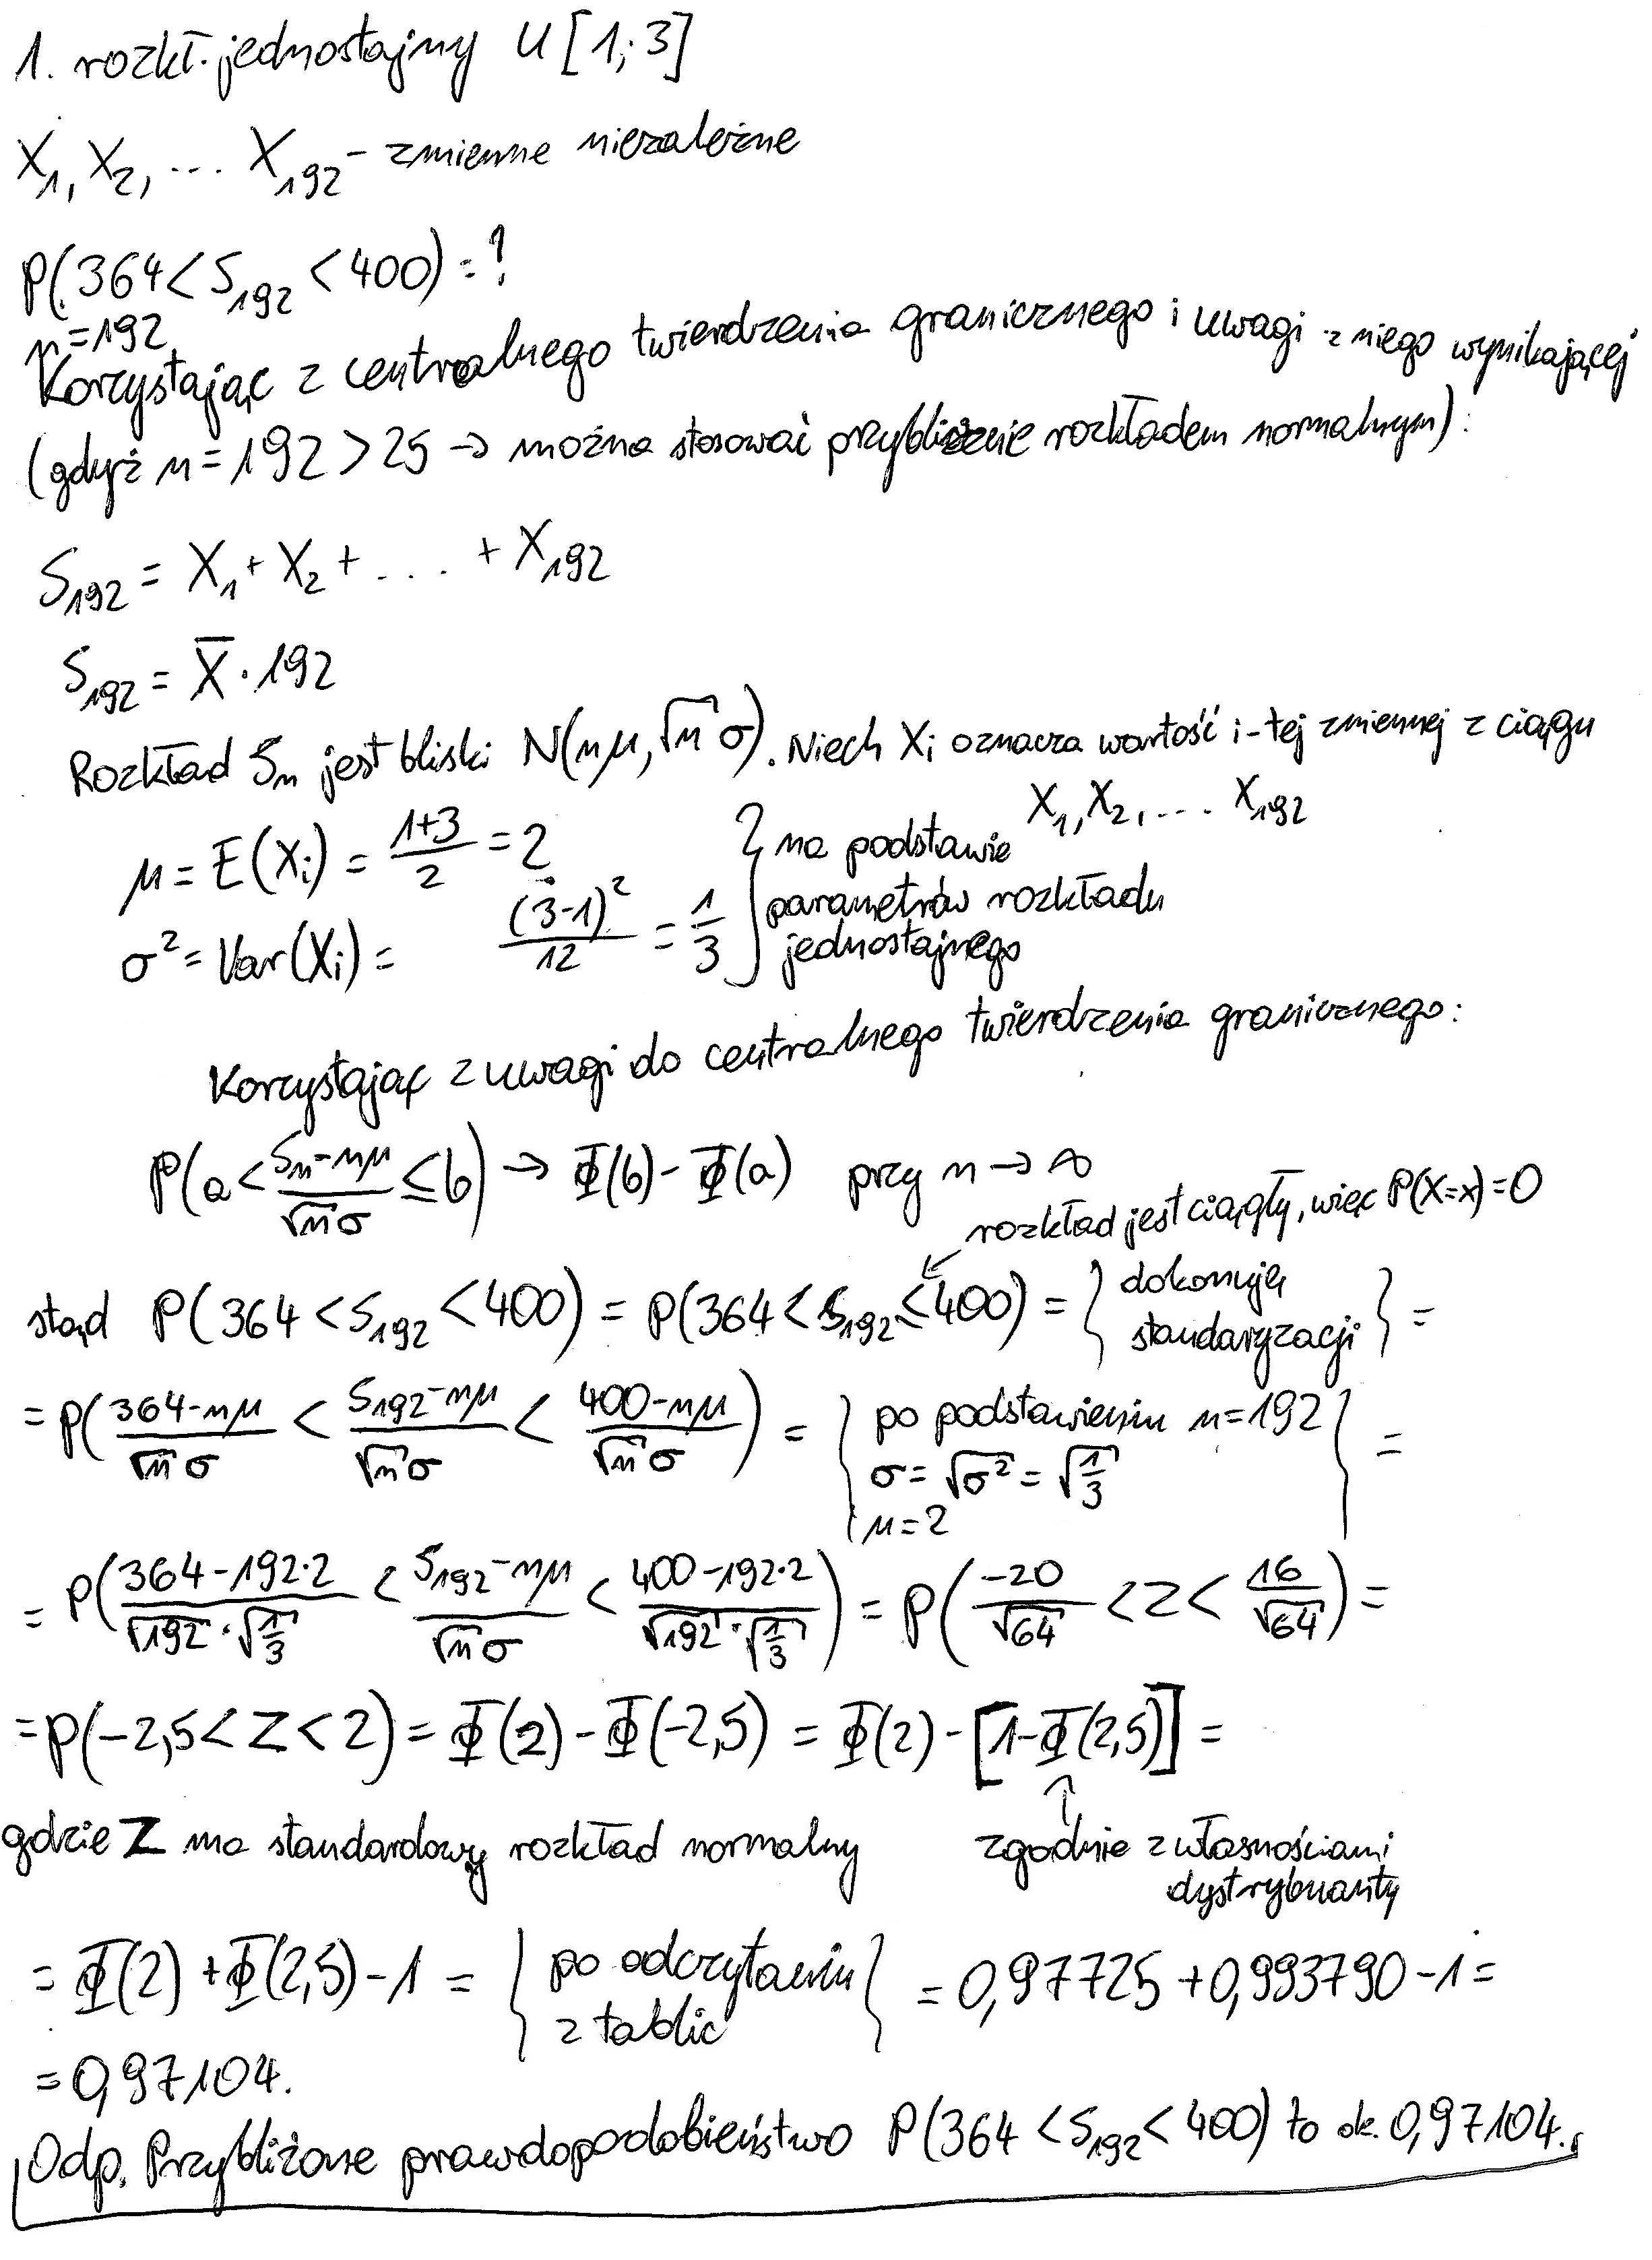 1. rozkł. jednostajny U[1;3]
X₁, X₂, ... X₁₉₂ - zmienne niezależne
P(364 < S₁₉₂ < 400) = ?
n = 192
Korzystając z centralnego twierdzenia granicznego i uwagi z niego wynikającej
(gdyż n = 192 > 25 → można stosować przybliżenie rozkładem normalnym):
S₁₉₂ = X₁ + X₂ + .... + X₁₉₂
S₁₉₂ = X̄ · 192
Rozkład Sₙ jest bliski N(nμ, √n σ). Niech Xᵢ oznacza wartość i-tej zmiennej z ciągu
X₁, X₂, ... X₁₉₂
μ = E(Xᵢ) = (1+3)/2 = 2 } na podstawie
σ² = Var(Xᵢ) = (3-1)²/12 = 1/3 } parametrów rozkładu
jednostajnego
Korzystając z uwagi do centralnego twierdzenia granicznego:
P(a < (Sₙ - nμ)/(√n σ) ≤ b) → Φ(b) - Φ(a) przy n → ∞
rozkład jest ciągły, więc P(X=x) = 0
stąd P(364 < S₁₉₂ < 400) = P(364 < S₁₉₂ ≤ 400) = { dokonuję standaryzacji } =
= P((364 - nμ)/(√n σ) < (S₁₉₂ - nμ)/(√n σ) < (400 - nμ)/(√n σ)) = { po podstawieniu n = 192
σ = √σ² = √(1/3)
μ = 2 } =
= P((364 - 192·2)/(√192 · √(1/3)) < (S₁₉₂ - nμ)/(√n σ) < (400 - 192·2)/(√192 · √(1/3))) = P(-20/√64 < Z < 16/√64) =
= P(-2,5 < Z < 2) = Φ(2) - Φ(-2,5) = Φ(2) - [1 - Φ(2,5)] =
gdzie Z ma standardowy rozkład normalny ↑ zgodnie z własnościami
dystrybuanty
= Φ(2) + Φ(2,5) - 1 = { po odczytaniu z tablic } = 0,97725 + 0,993790 - 1 =
= 0,97104.
Odp. Przybliżone prawdopodobieństwo P(364 < S₁₉₂ < 400) to ok. 0,97104.